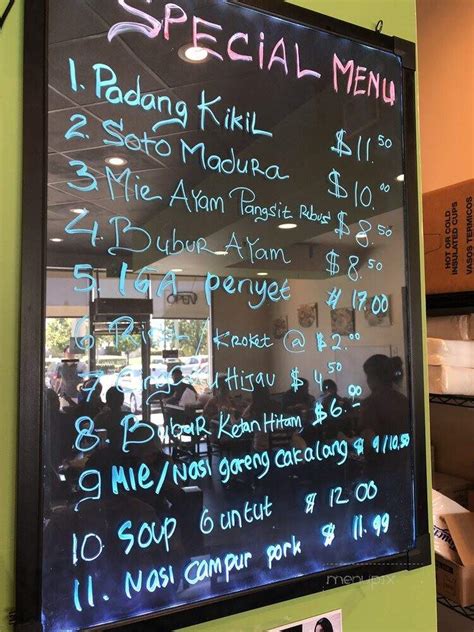 SPECIAL MENU
1. Padang Kikil $11.50
2. Soto Madura $10.00
3. Mie Ayam Pangsit Rebus $8.50
4. Bubur Ayam $8.50
5. IGA penyet $17.00
6 Risol / Kroket @ $2.00
7 Hijau $4.50
8. Bubur Ketan Hitam $6.00
9 Mie/Nasi goreng cakalang $9/10.50
10 Soup Buntut $12.00
11. Nasi campur pork $11.99
OPEN
HOT OR COLD
INSULATED CUPS
VASOS TERMICOS
menupix